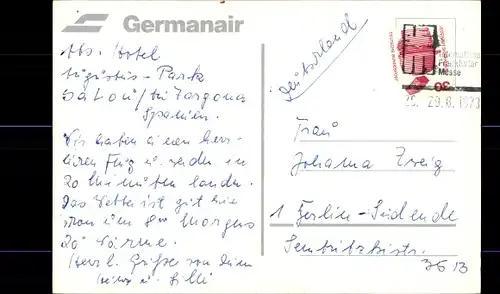 Germanair
Abs. Hotel
Augustus-Park
Salou/Tarragona
Spanien.
Wir haben einen herr-
lichen Flug u. werden in
20 Minuten landen.
Das Wetter ist gut hier
schon um 8 Morgens
20° Wärme.
Herzl. Grüße von Deinen
u. Lilli
Deutschland
Frankfurter
Messe
29.8.1973
Frau
Johanna Zweig
1 Berlin-Südende
Sembritzkistr.
36 B